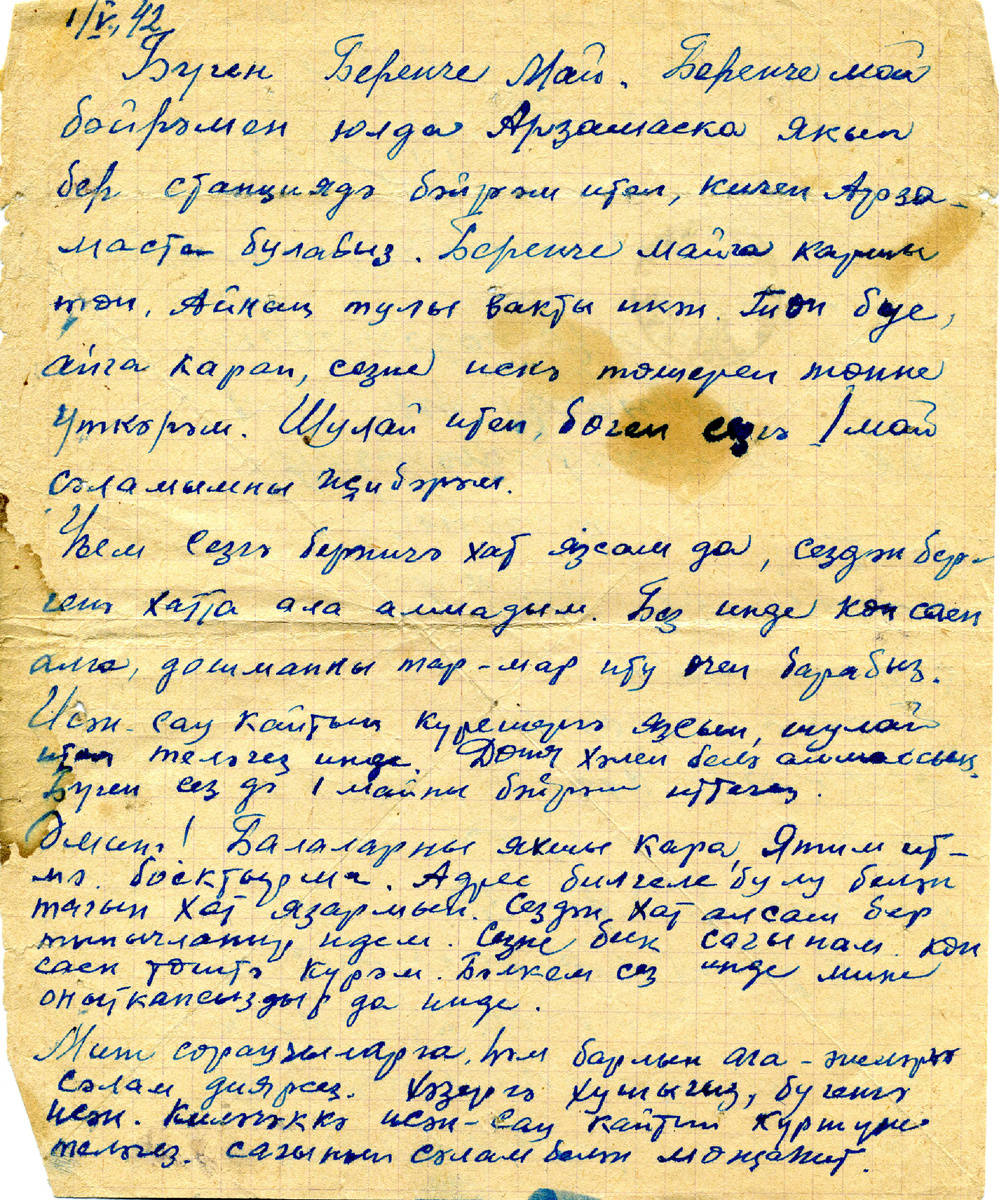 1/V, 42
Бүген Беренче Май. Беренче май
бәйрәмен юлда Арзамаска якын
бер станциядә бәйрәм итеп, кичен Арза-
маста булабыз. Беренче майга каршы
төн, Айның тулы вакты икән. Төн буе,
айга карап, сезне искә төшереп төнне
үткәрәм. Шулай итеп, бөген сезгә 1 май
сәламымны җибәрәм.
Һәм Сезгә берничә хат язсам да, сездән бер-
генә хатта ала алмадым. Без инде көн саен
алга, дошманны тар-мар итү өчен барабыз.
Исән-сау кайтып күрешергә язсын, шулай
итеп теләгез инде. Дөнья хәлен белә алмассың.
Бүген сез дә 1 майны бәйрәм иттегез.
Әминә! Балаларны яхшы кара, Ятим ит-
мә. боектырма. Адрес билгеле булу белән
тагын хат язармын. Сездән хат алсам бер
тынычланыр идем. Сезне бик сагынам көн
саен төштә күрәм. Бәлкем сез инде мине
оныткансыздыр да инде.
Мине сораучыларга, һәм барлык ага-энеләргә
сәлам диярсез. Хәзергә хушыгыз, бүгенгә
исән. Киләчәккә исән-сау кайтып күрешүне
теләгез. сагынып сәлам белән